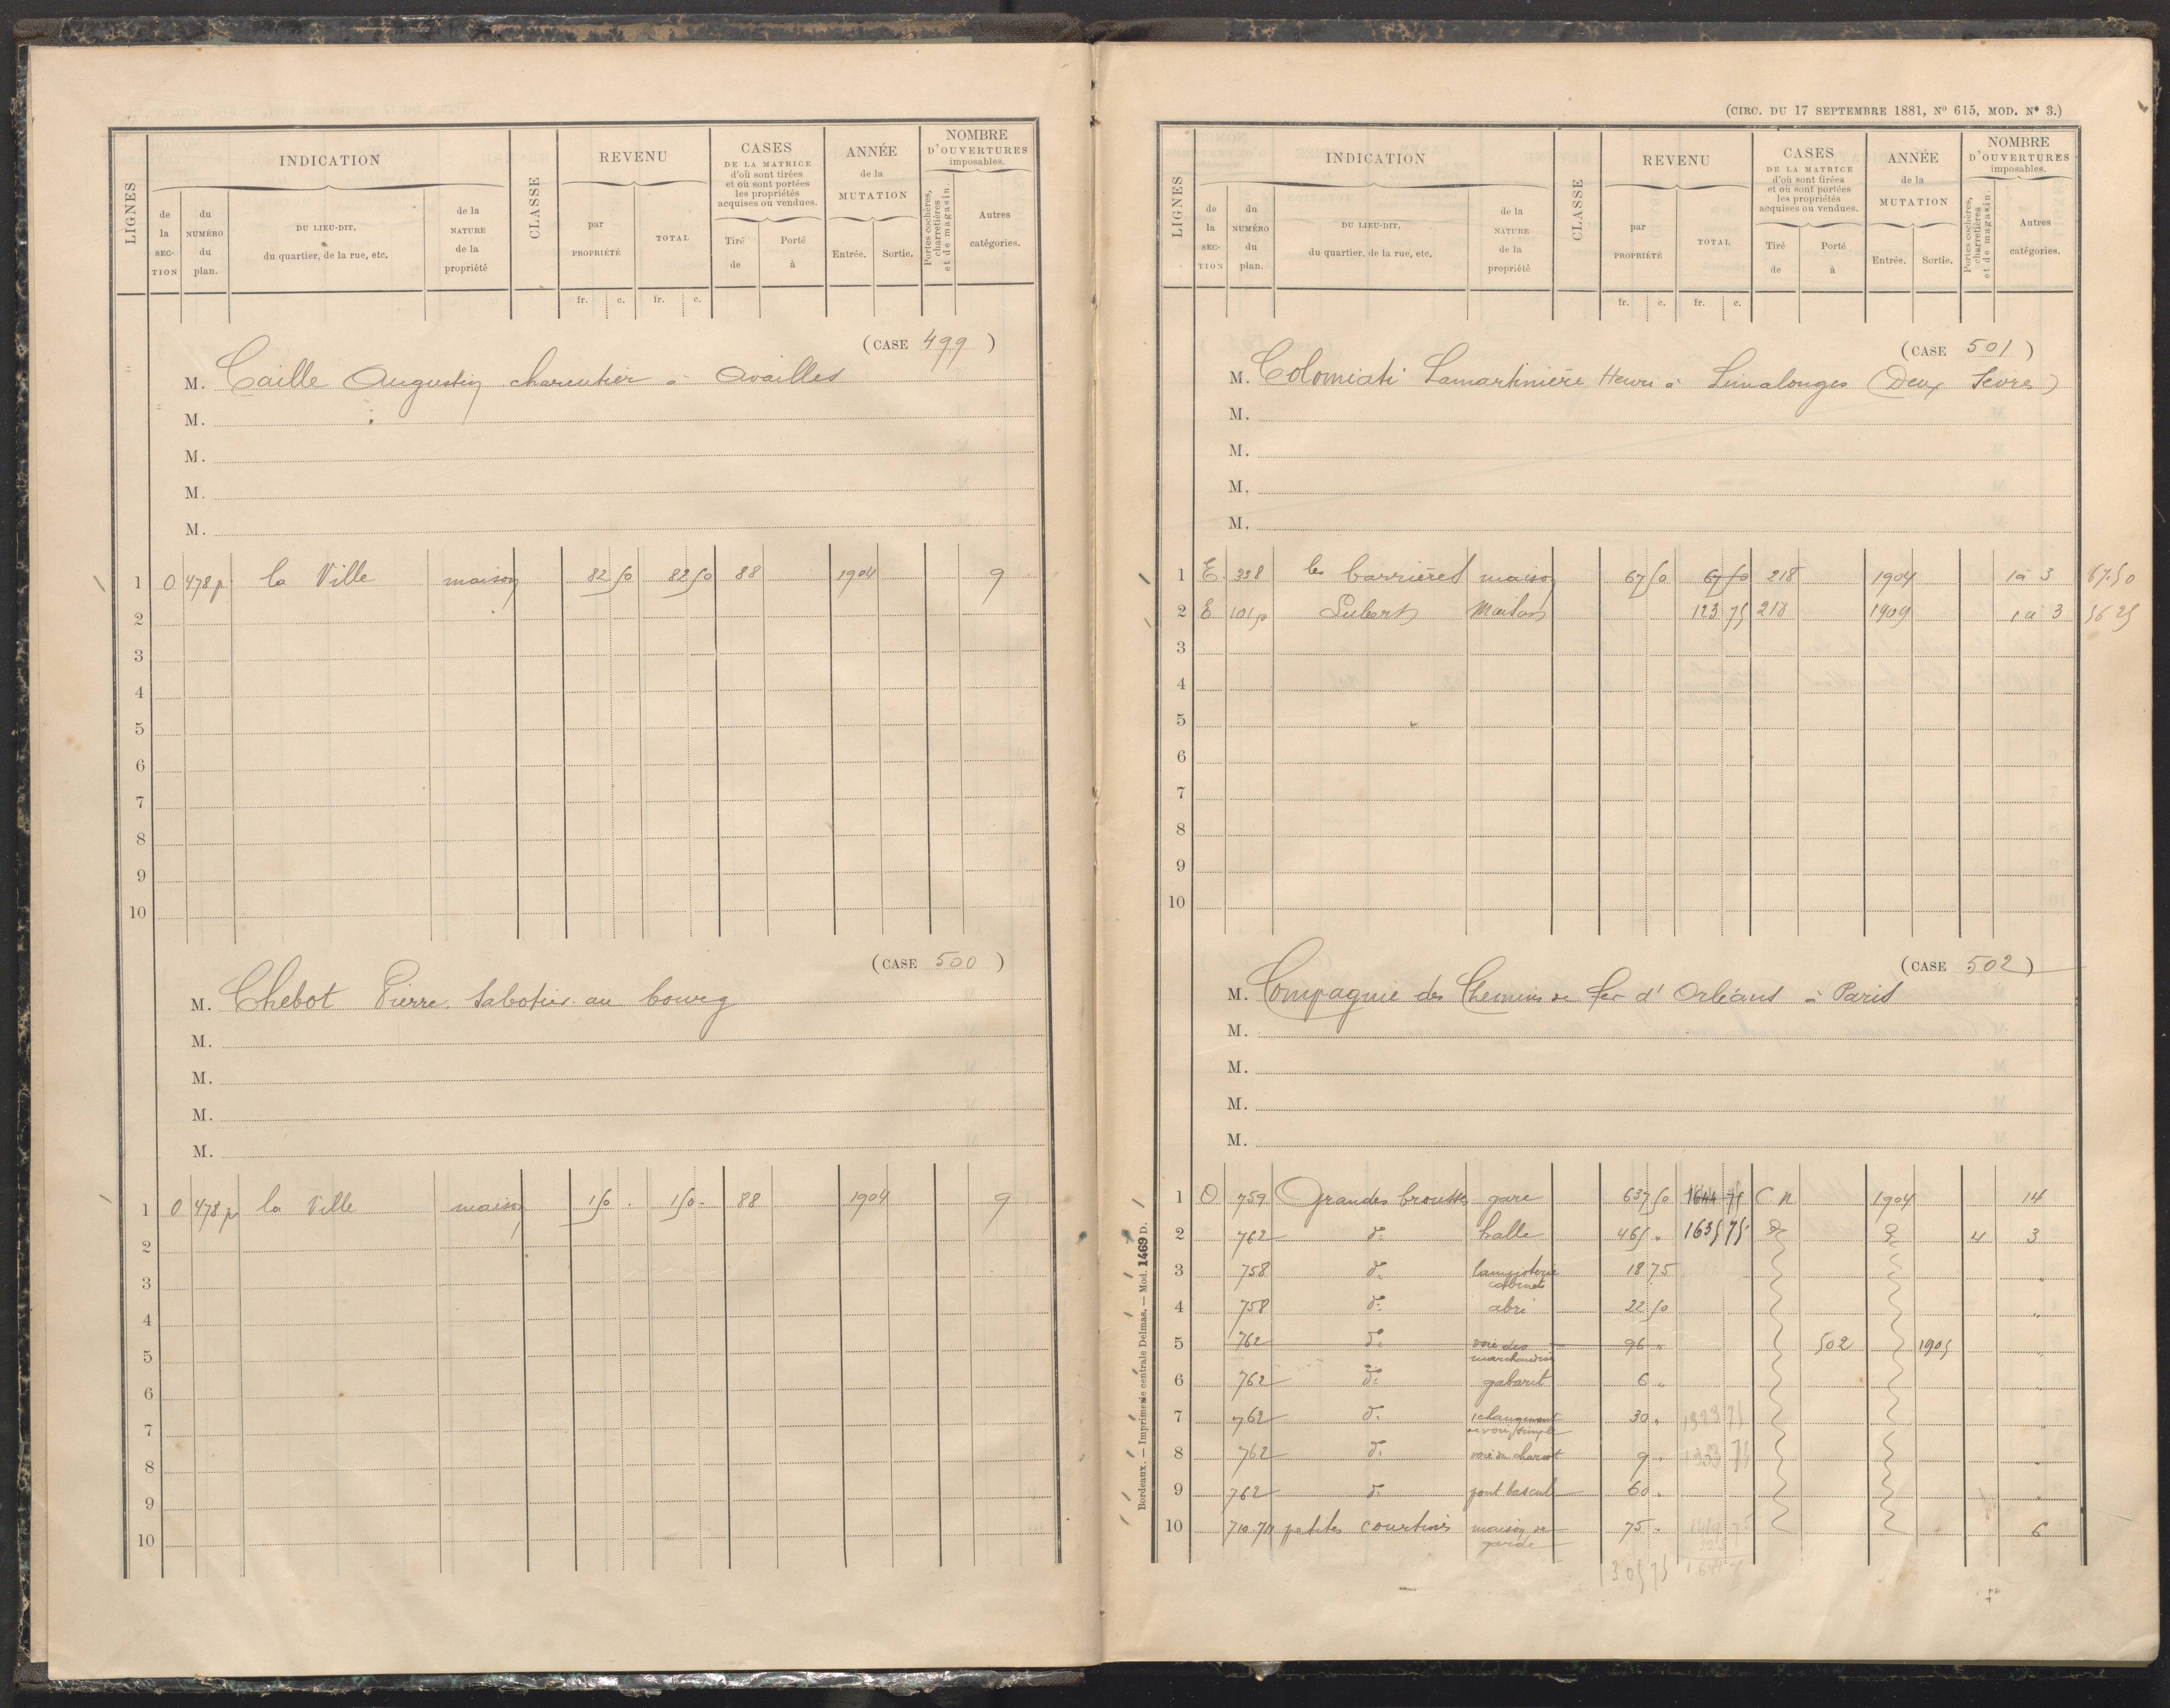 LIGNES
INDICATION
de la SECTION
du NUMÉRO du plan.
DU LIEU-DIT, du quartier, de la rue, etc.
de la NATURE de la propriété
CLASSE
REVENU
par PROPRIÉTÉ
TOTAL
fr. c. fr. c.
CASES
DE LA MATRICE
d'où sont tirées
et où sont portées
les propriétés
acquises ou vendues.
Tiré de
Porté à
ANNÉE
de la
MUTATION
Entrée. Sortie.
NOMBRE
D'OUVERTURES
imposables.
Portes cochères, charretières et de magasin.
Autres catégories.
(CASE 499)
M. Caille Augustin charentier à Availles
M.
M.
M.
M.
1 O 478 p. la Ville maison 82 50 82 50 88 1904 9
2
3
4
5
6
7
8
9
10
(CASE 500)
M. Chebot Pierre sabotier au bourg
M.
M.
M.
M.
1 O 478 p. la Ville maison 150 . 150 - 88 1904 9
2
3
4
5
6
7
8
9
10
(CIRC. DU 17 SEPTEMBRE 1881, N° 615, MOD. N° 3.)
LIGNES
INDICATION
de la SECTION
du NUMÉRO du plan.
DU LIEU-DIT, du quartier, de la rue, etc.
de la NATURE de la propriété
CLASSE
REVENU
par PROPRIÉTÉ
TOTAL
fr. c. fr. c.
CASES
DE LA MATRICE
d'où sont tirées
et où sont portées
les propriétés
acquises ou vendues.
Tiré de
Porté à
ANNÉE
de la
MUTATION
Entrée. Sortie.
NOMBRE
D'OUVERTURES
imposables.
Portes cochères, charretières et de magasin.
Autres catégories.
(CASE 501)
M. Colomiati Lamartinière Henri à Limalonges (Deux Sevres)
M.
M.
M.
M.
1 E 238 les barrières maison 67 50 67 50 218 1904 1 à 3 67.50
2 E 101 p Maison 123 75 218 1909 1 à 3 56 25
3
4
5
6
7
8
9
10
(CASE 502)
M. Compagnie des Chemins de fer d'Orléans à Paris
M.
M.
M.
M.
1 O 759 Grandes brousses gare 637 50 1644 75 C N 1904 14
2 762 d° halle 465 " 1635 75 d° d° 4 3
3 758 d° lampisterie cabinets 18 75 "
4 758 d° abri 22 50 "
5 762 d° voie des marchandises 96 " 502 1905 "
6 762 d° gabarit 6 " "
7 762 d° 1 changement de voie simple 30 " 1323 75 "
8 762 d° voie du chariot 9 " 1353 75 "
9 762 d° pont bascule 60 " "
10 710.711 petites courtines maison de garde 75 " 6
1305 75
Bordeaux. — Imprimerie centrale Delmas. — Mod. 1469 D.